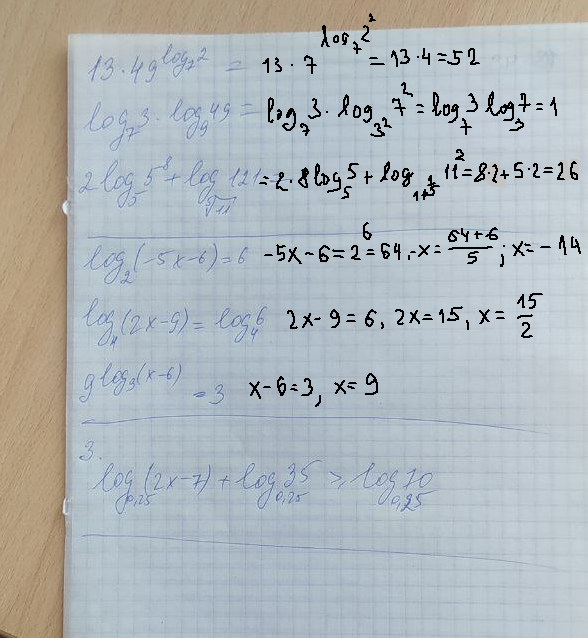 13 · 49^{log_7 2} = 13 · 7^{log_7 2^2} = 13 · 4 = 52
log_7 3 · log_9 49 = log_7 3 · log_{3^2} 7^2 = log_7 3 log_3 7 = 1
2 log_5 5^8 + log_{√11} 121 = 2 · 8 log_5 5 + log_{11^{1/5}} 11^2 = 8·2 + 5·2 = 26
log_2 (-5x-6) = 6 -5x-6 = 2^6 = 64, -x = \frac{64+6}{5}; x = -14
log_4 (2x-9) = log_4 6 2x-9 = 6, 2x = 15, x = \frac{15}{2}
9^{log_3 (x-6)} = 3 x-6 = 3, x = 9
3.
log_{0,25} (2x-7) + log_{0,25} 35 ≥ log_{0,25} 70